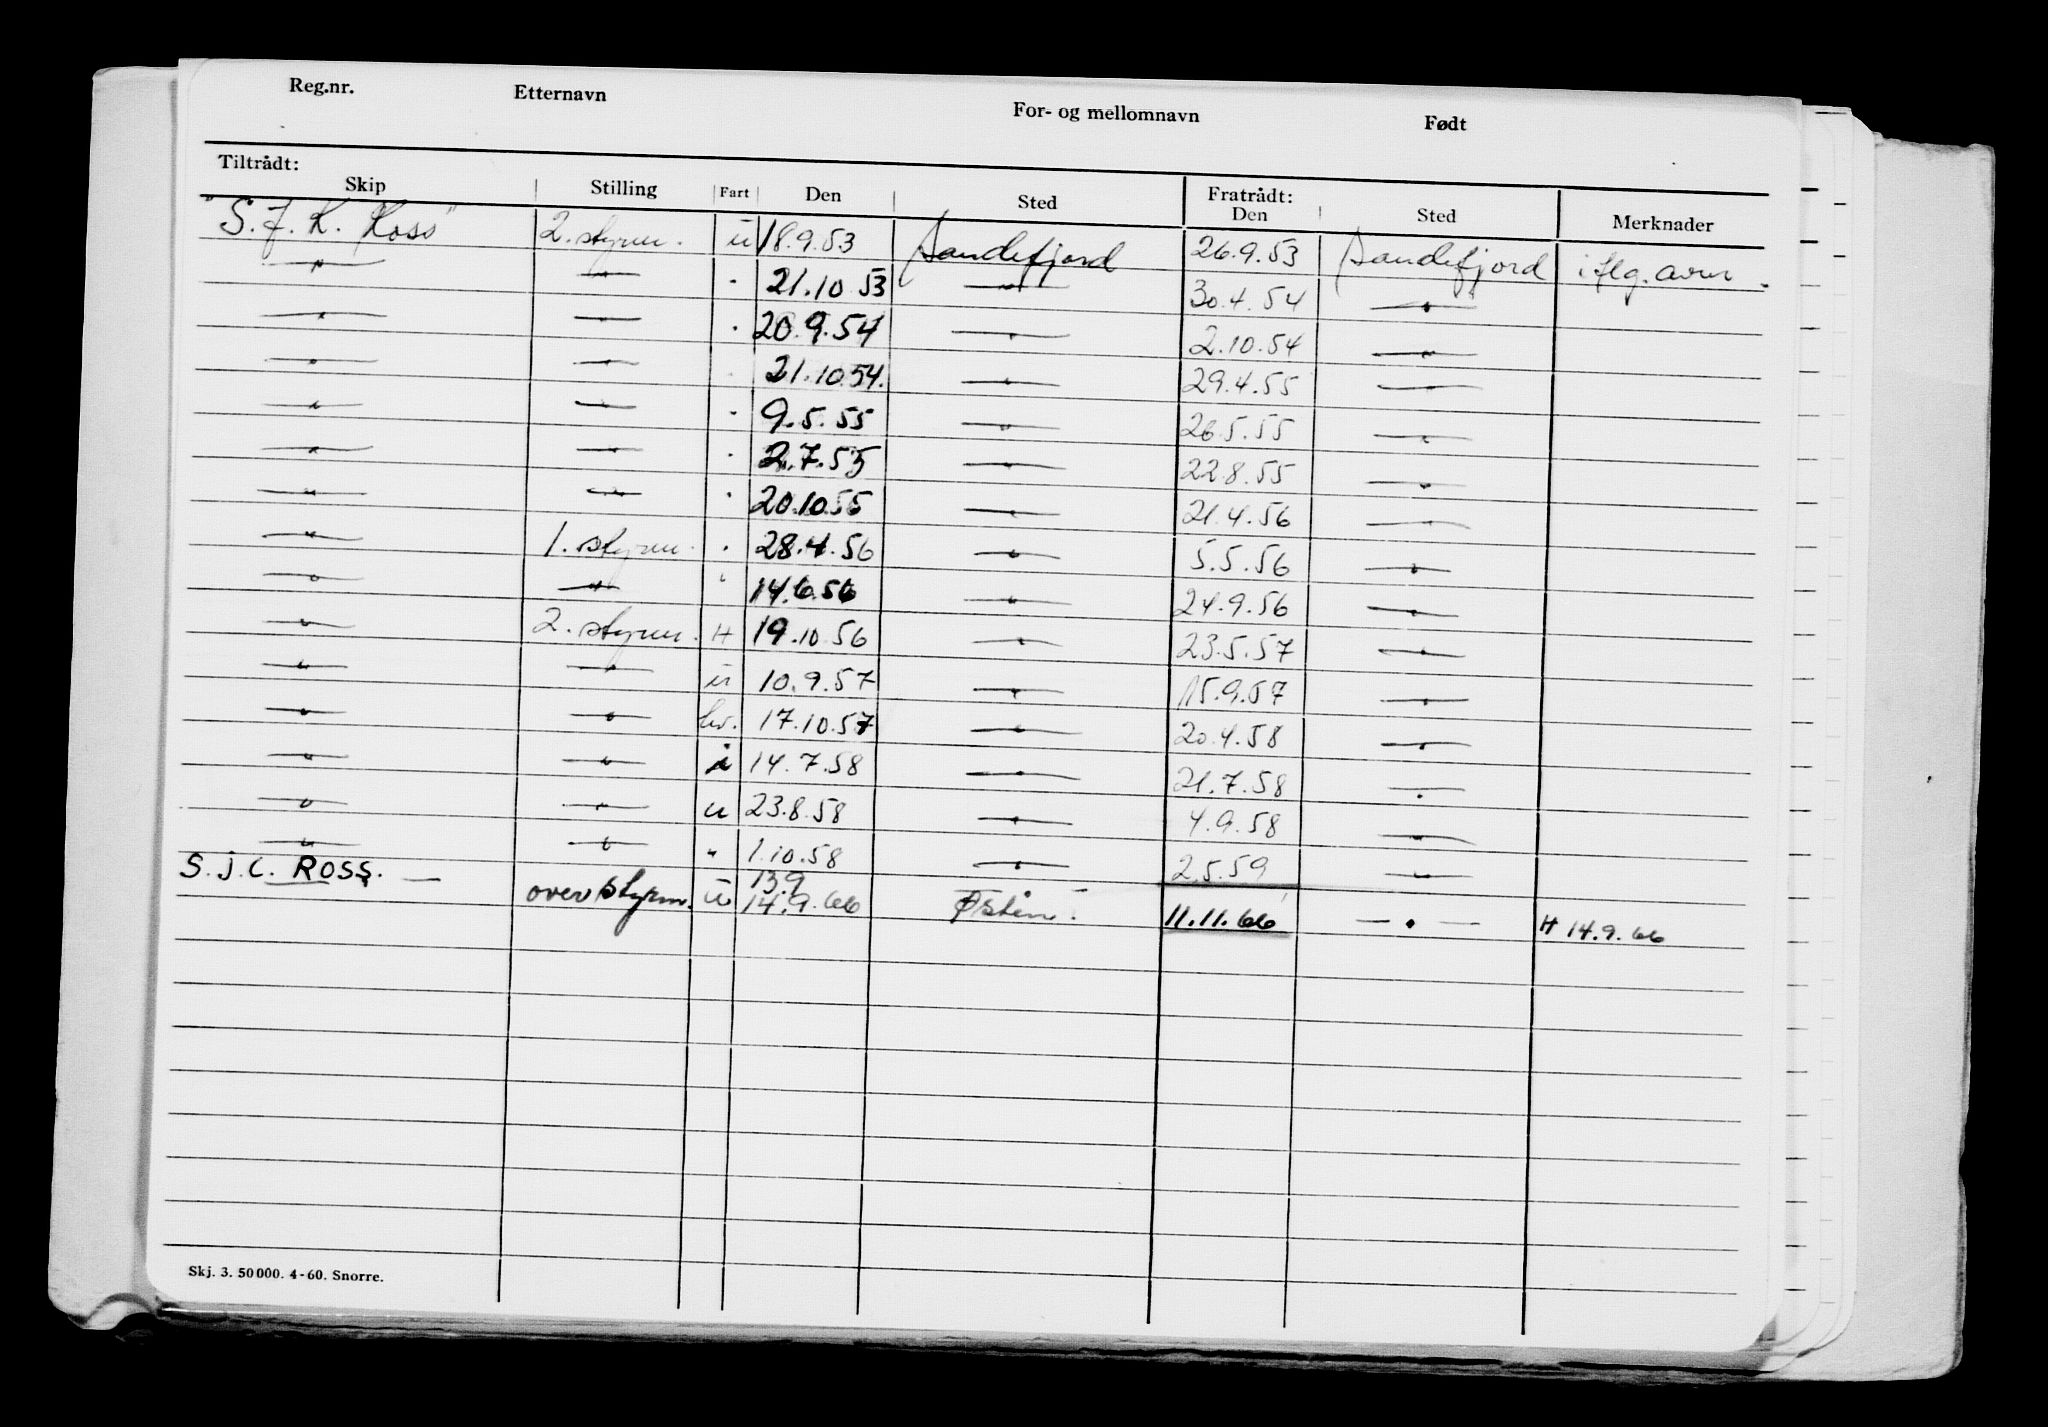 Reg.nr. Etternavn For- og mellomnavn Født
Tiltrådt: Fratrådt:
Skip Stilling Fart Den Sted Den Sted Merknader
"S. J. K. Ross" 2. styrm. u 18.9.53 Sandefjord 26.9.53 Sandefjord i flg. avm.
—"— —"— " 21.10.53 —"— 30.4.54 —"—
—"— —"— " 20.9.54 —"— 2.10.54 —"—
—"— —"— " 21.10.54. —"— 29.4.55 —"—
—"— —"— " 9.5.55 —"— 26.5.55 —"—
—"— —"— " 2.7.55 —"— 22.8.55 —"—
—"— —"— " 20.10.55 —"— 21.4.56 —"—
—"— 1. styrm. " 28.4.56 —"— 5.5.56 —"—
—"— —"— " 14.6.56 —"— 24.9.56 —"—
—"— 2. styrm. H 19.10.56 —"— 23.5.57 —"—
—"— —"— u 10.9.57 —"— 15.9.57 —"—
—"— —"— hv. 17.10.57 —"— 20.4.58 —"—
—"— —"— i 14.7.58 —"— 21.7.58 —"—
—"— —"— u 23.8.58 —"— 4.9.58 —"—
—"— —"— " 1.10.58 —"— 2.5.59 —"—
S.J.C. ROSS. — overstyrm. u 13.9 14.9.66 Østen. 11.11.66 —"— H 14.9.66
Skj. 3. 50000. 4-60. Snorre.